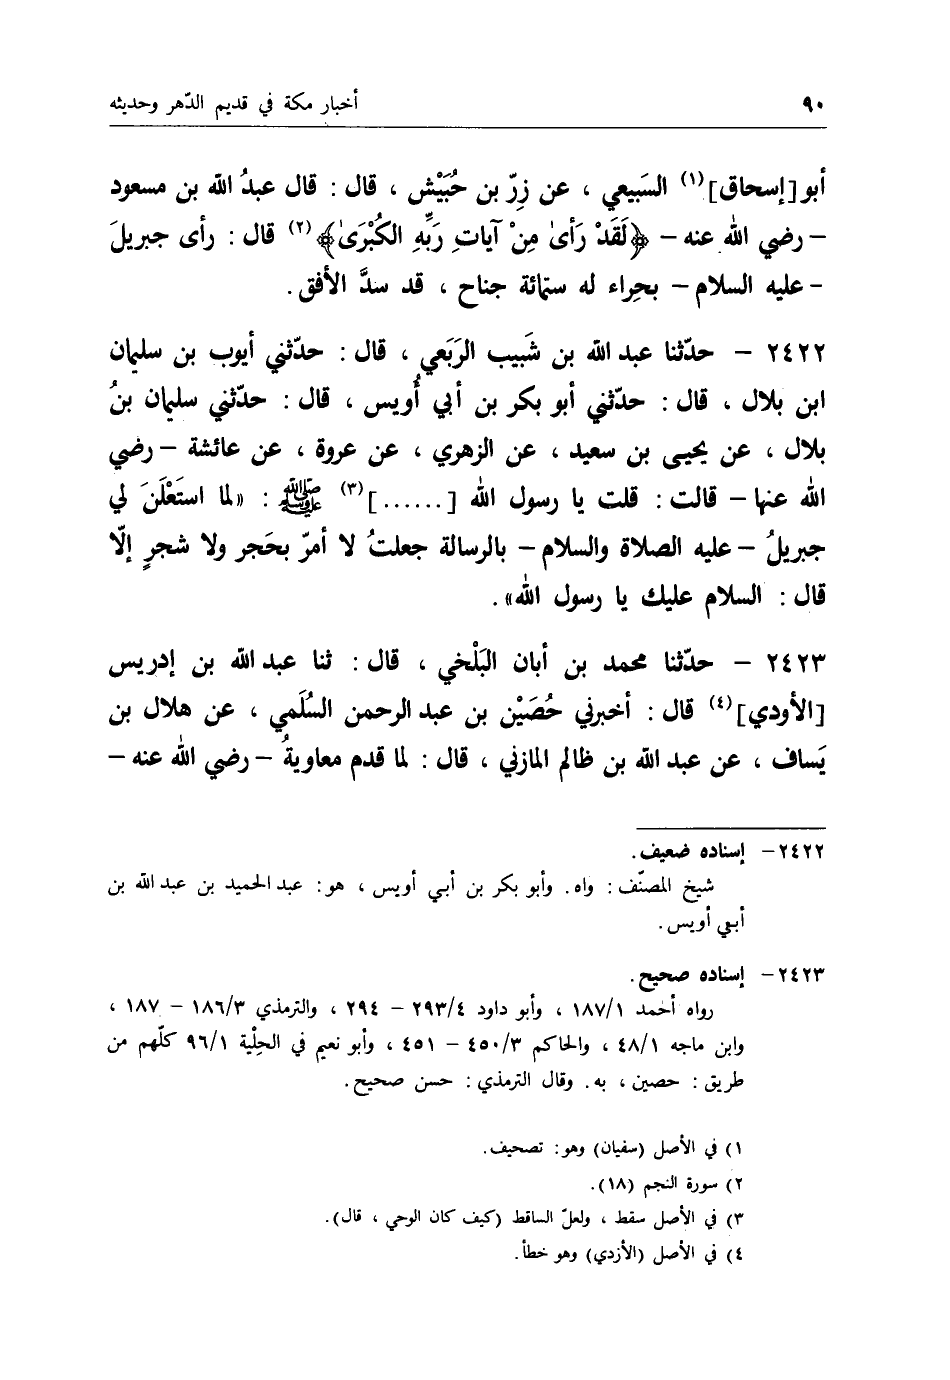 ٩٠ أخبار مكة في قديم الدّهر وحديثه
أبو [إسحاق](١) السَبيعي ، عن زِرّ بن حُبَيْش ، قال : قال عبدُ الله بن مسعود
– رضي الله عنه – ﴿لَقَدْ رَأىٰ مِنْ آيَاتِ رَبِّهِ الكُبْرَىٰ﴾(٢) قال : رأى جبريلَ
– عليه السلام – بحِراء له ستمّائة جناح ، قد سدَّ الأفق .
٢٤٢٢ – حدّثنا عبد الله بن شَبيب الرَبَعي ، قال : حدّثني أيوب بن سليمان
ابن بلال ، قال : حدّثني أبو بكر بن أبي أُويس ، قال : حدّثني سليمان بنُ
بلال ، عن يحيى بن سعيد ، عن الزهري ، عن عروة ، عن عائشة – رضي
الله عنها – قالت : قلت يا رسول الله [......](٣) ﷺ : «لما استَعْلَنَ لي
جبريلُ – عليه الصلاة والسلام – بالرسالة جعلتُ لا أمرّ بحَجر ولا شجرٍ إلّا
قال : السلام عليك يا رسول الله» .
٢٤٢٣ – حدّثنا محمد بن أبان البَلْخي ، قال : ثنا عبد الله بن إدريس
[الأودي](٤) قال : أخبرني حُصَيْن بن عبد الرحمن السُلَمي ، عن هلال بن
يَساف ، عن عبد الله بن ظالم المازني ، قال : لما قدم معاويةُ – رضي الله عنه –
٢٤٢٢– إسناده ضعيف .
شيخ المصنّف : واه . وأبو بكر بن أبي أويس ، هو : عبد الحميد بن عبد الله بن
أبي أويس .
٢٤٢٣– إسناده صحيح .
رواه أحمد ١٨٧/١ ، وأبو داود ٢٩٣/٤ – ٢٩٤ ، والترمذي ١٨٦/٣ – ١٨٧ ،
وابن ماجه ٤٨/١ ، والحاكم ٤٥٠/٣ – ٤٥١ ، وأبو نعيم في الحِلْية ٩٦/١ كلّهم من
طريق : حصين ، به . وقال الترمذي : حسن صحيح .
١) في الأصل (سفيان) وهو : تصحيف .
٢) سورة النجم (١٨) .
٣) في الأصل سقط ، ولعلّ الساقط (كيف كان الوحي ، قال) .
٤) في الأصل (الأزدي) وهو خطأ .